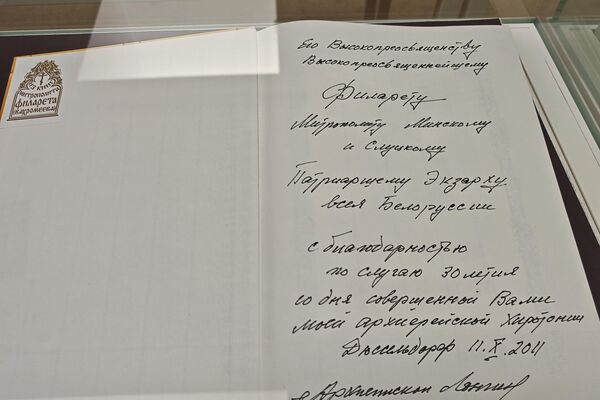 ИЗ КНИГ
МИТРОПОЛИТА
ФИЛАРЕТА
(ВАХРОМЕЕВА)
Его Высокопреосвященству
Высокопреосвященнейшему
Филарету
Митрополиту Минскому
и Слуцкому
Патриаршему Экзарху
всея Белоруссии
с благодарностью
по случаю 30летия
со дня совершенной Вами
моей архиерейской Хиротонии
Дюссельдорф 11.X.2011
Архиепископ Лонгин